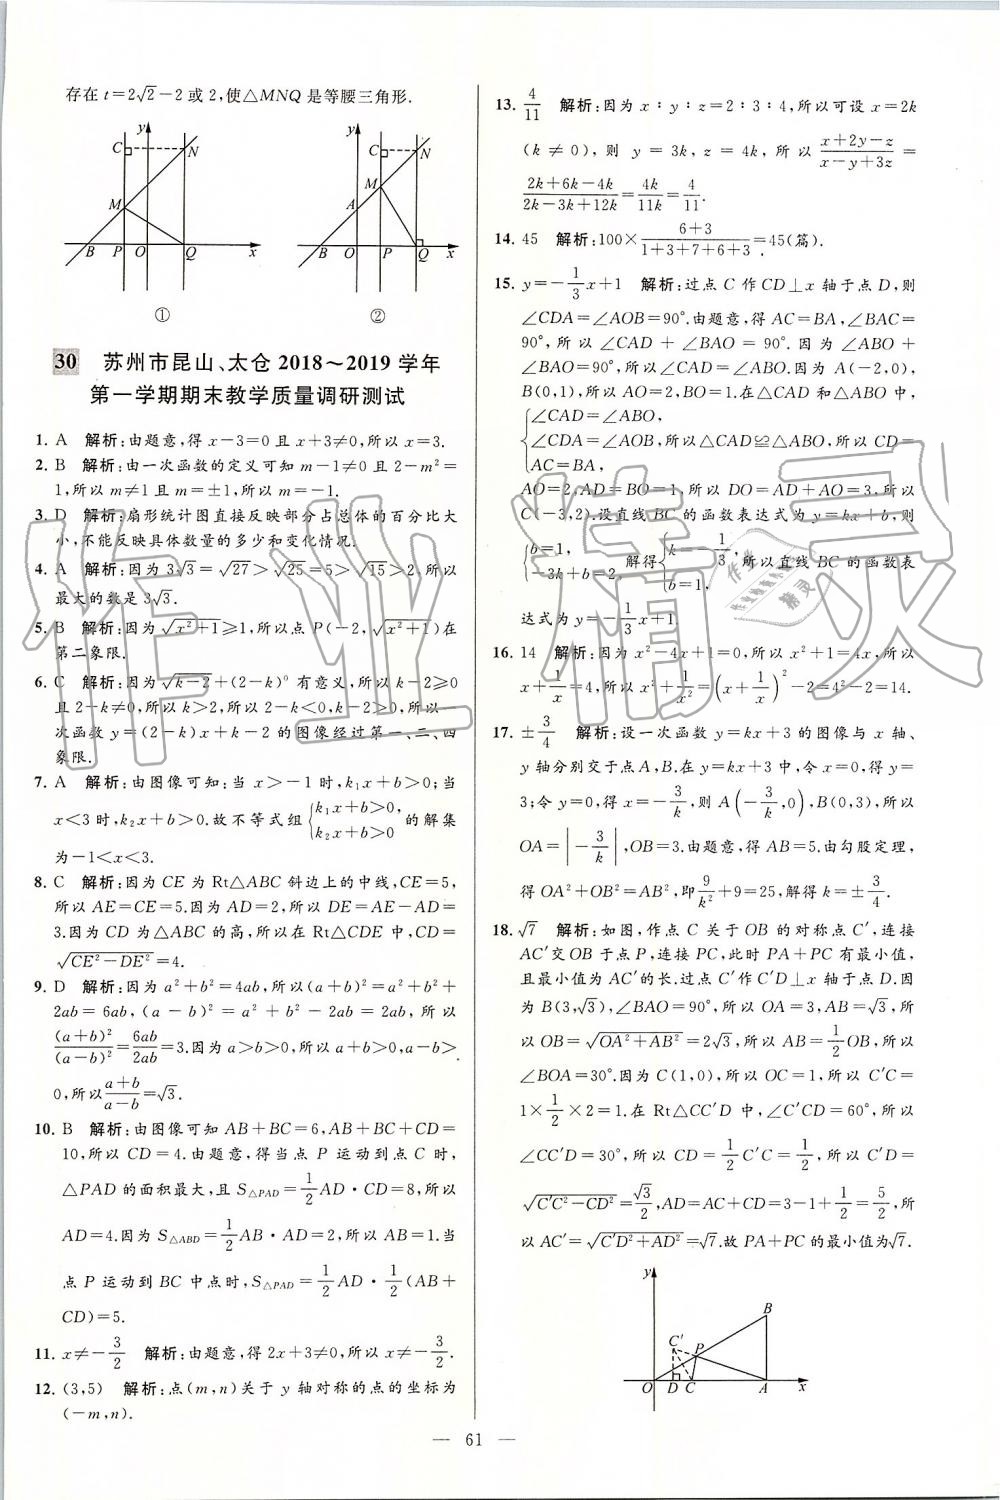 存在 t=2√2-2或2,使△MNQ是等腰三角形.
y
C
N
M
B P O Q x
①
y
C
N
M
A
B O P Q x
②
30 苏州市昆山、太仓2018～2019学年
第一学期期末教学质量调研测试
1. A 解析:由题意,得x-3=0且x+3≠0,所以x=3.
2. B 解析:由一次函数的定义可知m-1≠0且2-m²=
1,所以m≠1且m=±1,所以m=-1.
3. D 解析:扇形统计图直接反映部分占总体的百分比大
小,不能反映具体数量的多少和变化情况.
4. A 解析:因为3√3=√27>√25=5>√15>2,所以
最大的数是3√3.
5. B 解析:因为√(x²+1)≥1,所以点P(-2,√(x²+1))在
第二象限.
6. C 解析:因为√(k-2)+(2-k)⁰有意义,所以k-2≥0
且2-k≠0,所以k>2,所以2-k<0,k-2>0,所以一
次函数y=(2-k)x+k-2的图像经过第一、二、四
象限.
7. A 解析:由图像可知:当x>-1时,k₁x+b>0;当
x<3时,k₂x+b>0.故不等式组{k₁x+b>0, k₂x+b>0 的解集
为-1<x<3.
8. C 解析:因为CE为Rt△ABC斜边上的中线,CE=5,
所以AE=CE=5.因为AD=2,所以DE=AE-AD=
3.因为CD为△ABC的高,所以在Rt△CDE中,CD=
√(CE²-DE²)=4.
9. D 解析:因为a²+b²=4ab,所以(a+b)²=a²+b²+
2ab=6ab,(a-b)²=a²+b²-2ab=2ab,所以
(a+b)²/(a-b)²=6ab/2ab=3.因为a>b>0,所以a+b>0,a-b>
0,所以(a+b)/(a-b)=√3.
10. B 解析:由图像可知AB+BC=6,AB+BC+CD=
10,所以CD=4.由题意,得当点P运动到点C时,
△PAD的面积最大,且S△PAD=1/2AD·CD=8,所以
AD=4.因为S△ABD=1/2AB·AD=2,所以AB=1.当
点P运动到BC中点时,S△PAD=1/2AD·1/2(AB+
CD)=5.
11. x≠-3/2 解析:由题意,得2x+3≠0,所以x≠-3/2.
12. (3,5) 解析:点(m,n)关于y轴对称的点的坐标为
(-m,n).
13. 4/11 解析:因为x∶y∶z=2∶3∶4,所以可设x=2k
(k≠0),则y=3k,z=4k,所以(x+2y-z)/(x-y+3z)=
(2k+6k-4k)/(2k-3k+12k)=4k/11k=4/11.
14. 45 解析:100×(6+3)/(1+3+7+6+3)=45(篇).
15. y=-1/3x+1 解析:过点C作CD⊥x轴于点D,则
∠CDA=∠AOB=90°.由题意,得AC=BA,∠BAC=
90°,所以∠CAD+∠BAO=90°.因为A(-2,0),
B(0,1),所以AO=2,BO=1.在△CAD和△ABO中,
{∠CAD=∠ABO,
∠CDA=∠AOB,所以△CAD≌△ABO,所以CD=
AC=BA,
AO=2,AD=BO=1,所以DO=AD+AO=3,所以
C(-3,2).设直线BC的函数表达式为y=kx+b,则
{b=1, -3k+b=2, 解得{k=-1/3, b=1, 所以直线BC的函数表
达式为y=-1/3x+1.
16. 14 解析:因为x²-4x+1=0,所以x²+1=4x,所以
x+1/x=4,所以x²+1/x²=(x+1/x)²-2=4²-2=14.
17. ±3/4 解析:设一次函数y=kx+3的图像与x轴、
y轴分别交于点A,B.在y=kx+3中,令x=0,得y=
3;令y=0,得x=-3/k,则A(-3/k,0),B(0,3),所以
OA=|-3/k|,OB=3.由题意,得AB=5.由勾股定理,
得OA²+OB²=AB²,即9/k²+9=25,解得k=±3/4.
18. √7 解析:如图,作点C关于OB的对称点C′,连接
AC′交OB于点P,连接PC,此时PA+PC有最小值,
且最小值为AC′的长.过点C′作C′D⊥x轴于点D.因
为B(3,√3),∠BAO=90°,所以OA=3,AB=√3,所
以OB=√(OA²+AB²)=2√3,所以AB=1/2OB,所以
∠BOA=30°.因为C(1,0),所以OC=1,所以C′C=
1×1/2×2=1.在Rt△CC′D中,∠C′CD=60°,所以
∠CC′D=30°,所以CD=1/2C′C=1/2,所以C′D=
√(C′C²-CD²)=√3/2,AD=AC+CD=3-1+1/2=5/2,所
以AC′=√(C′D²+AD²)=√7.故PA+PC的最小值为√7.
y
B
C′
P
O D C A x
— 61 —
作业精灵